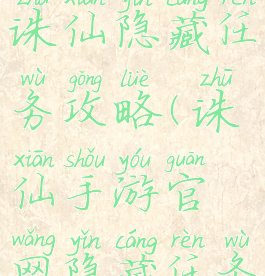 zhū xiān yǐn cáng rèn
诛仙隐藏任
wù gōng lüè zhū
务攻略(诛
xiān shǒu yóu guān
仙手游官
wǎng yǐn cáng rèn wù
网隐藏任务